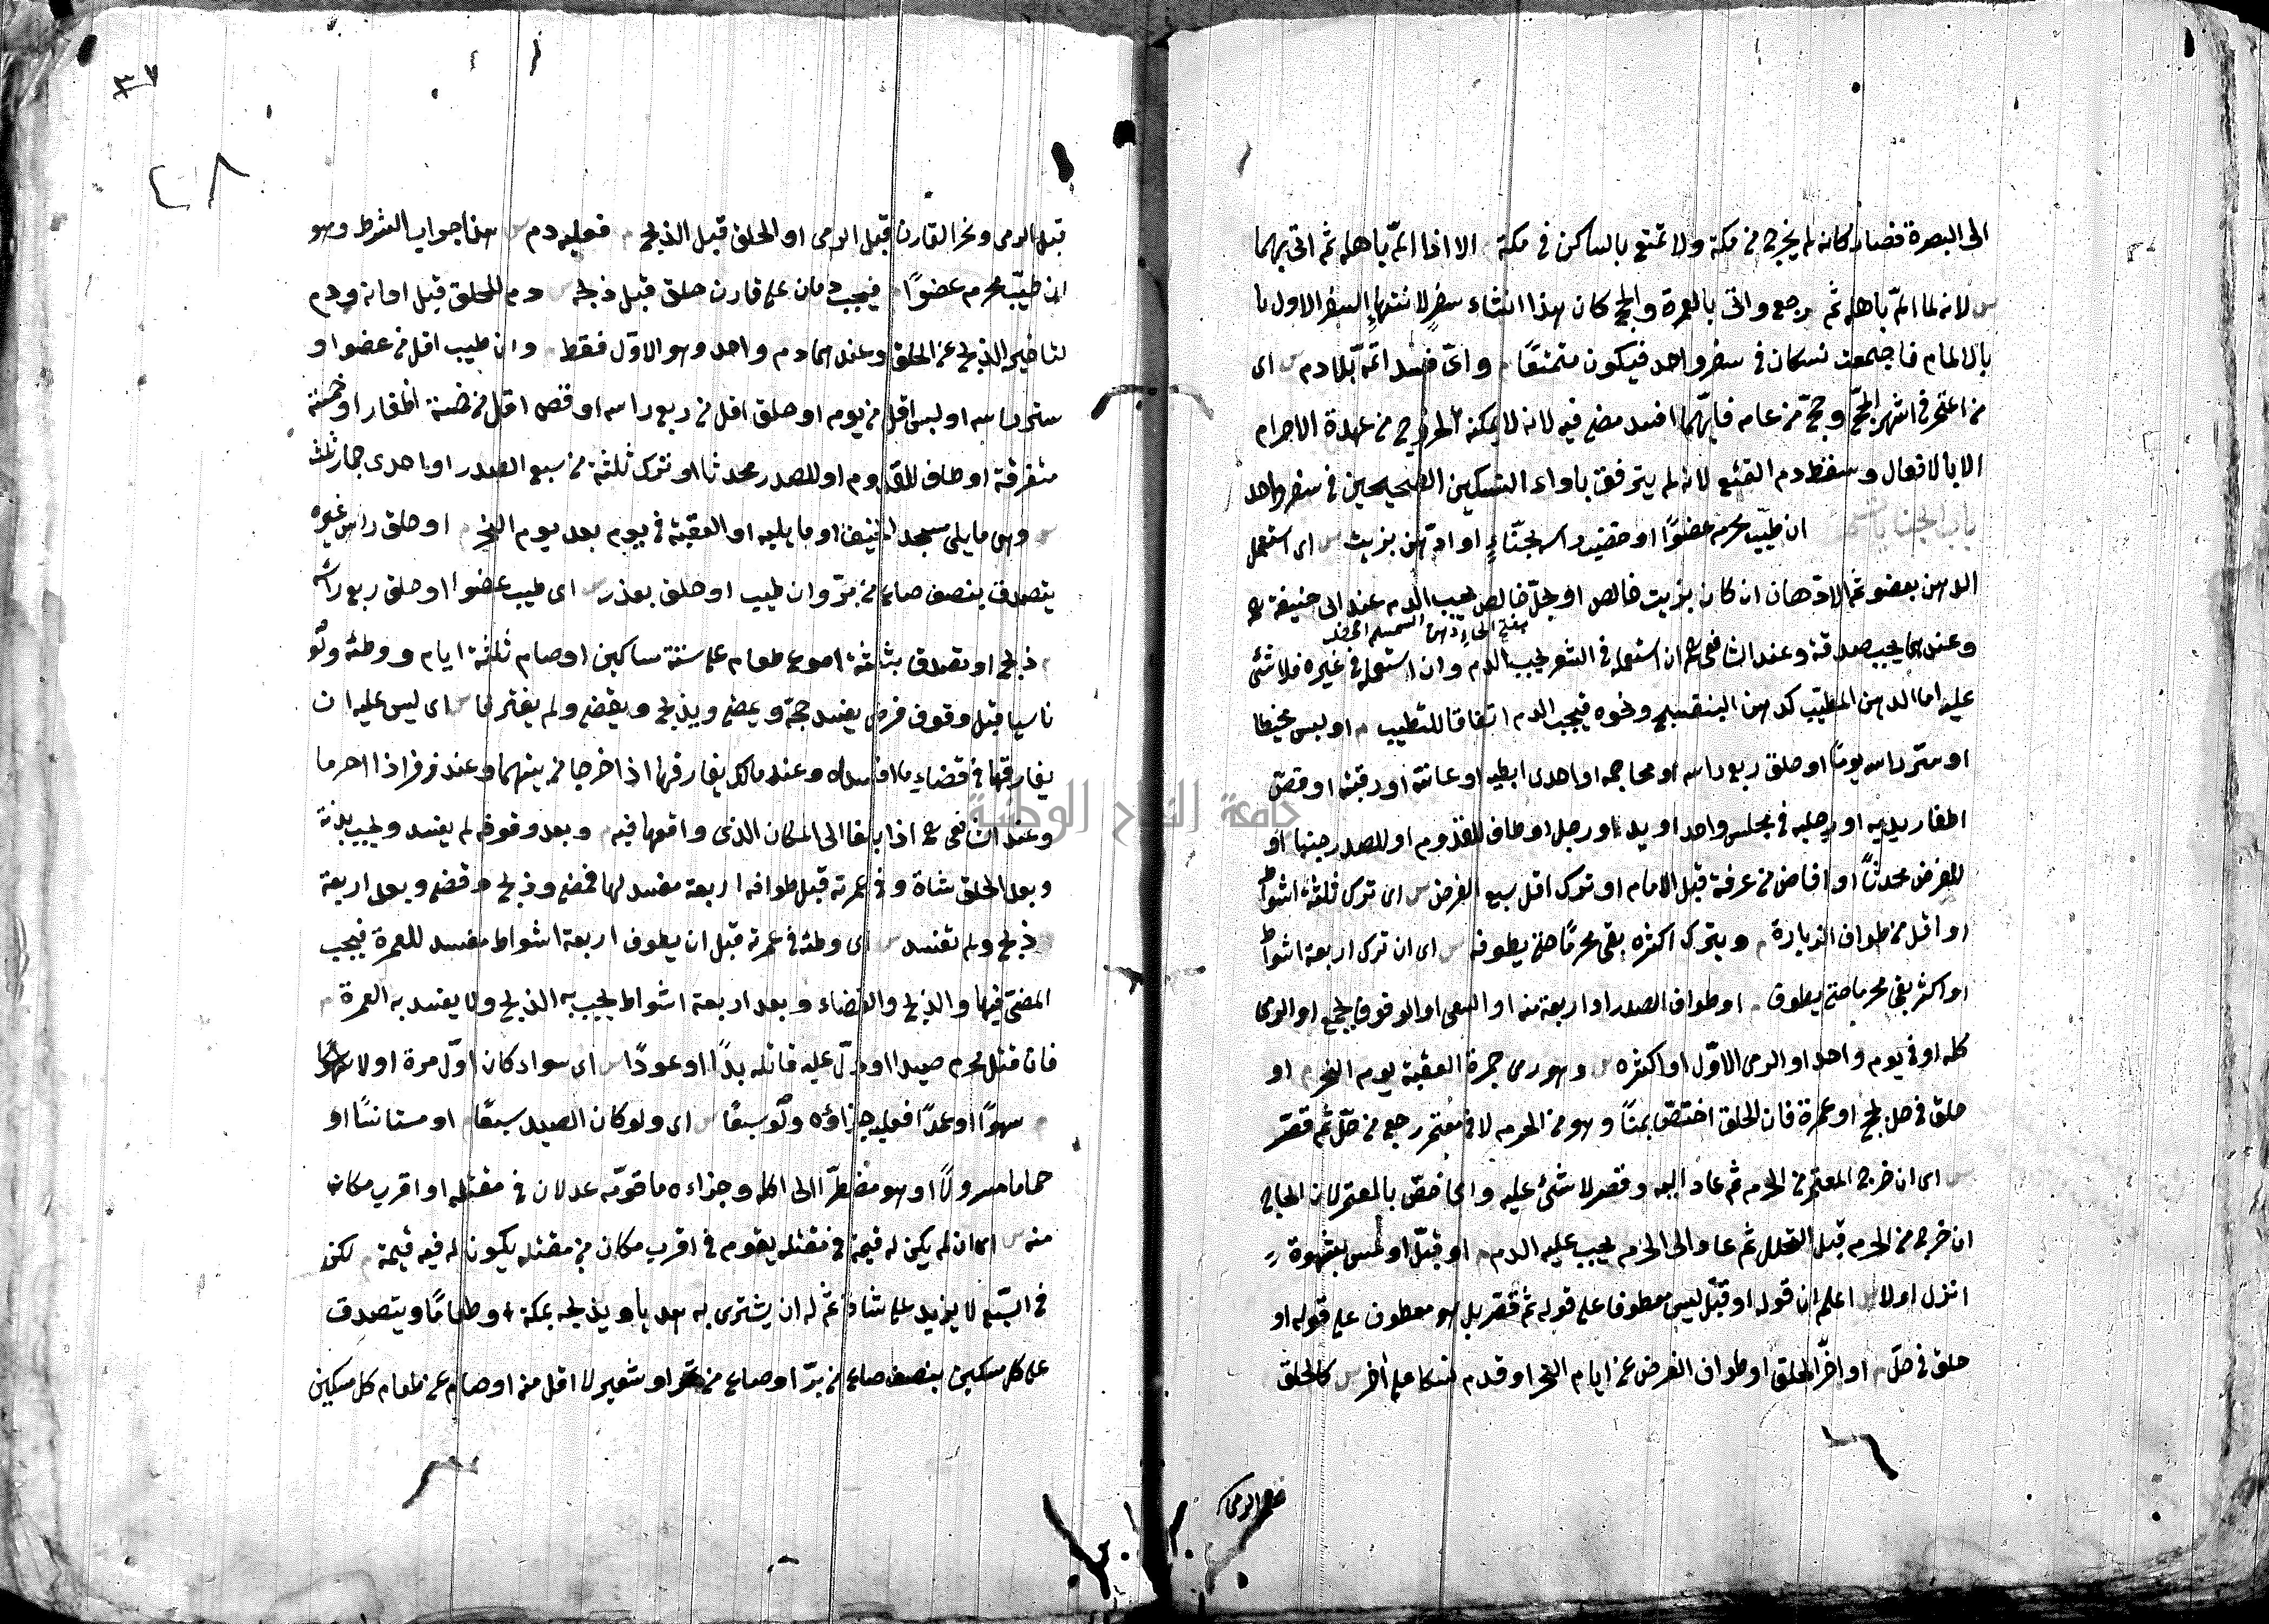 الى البصرة فصار كانه لم يخرج من مكة ولا تمتع بالساكن فى مكة الا اذا المّ باهله ثم اتى بهما
س لانه لما المّ باهله ثم رجع واتى بالعمرة والحج كان هذا انشاء سفرٍ لانتهاءِ السفر الاول
بالالمام فاجتمعت نسكان فى سفر واحد فيكون متمتعًا م واىّ فسد اتمه بلا دم س اى
من اعتمر فى اشهر الحجّ وحجّ من عامه فايّهما افسد مضى فيه لانه لا يمكنه الخروج من عهدة الاحرام
الا بالافعال وسقط دم التمتع لانه لم يترفق باداء النسكين الصحيحين فى سفر واحد
باب الجنايات م ان طيّب محرم عضوًا او خضب راسه بحنّاءٍ او ادّهن بزيت س اى استعمل
الدهن بعضو ثم الادّهان ان كان بزيت خالص او بحلّ خالص يجب الدم عند ابى حنيفة رح
بفتح الحاء دهن السمسم
وعندهما يجب صدقة وعند الشافعى رح ان استعمله فى الشعر يجب الدم وان استعمله فى غيره فلا شئ
عليه اما الدهن المطيّب كدهن البنفسج ونحوه فيجب الدم اتفاقا للتطييب م او لبس مخيطا
او ستر راسه يومًا او حلق ربع راسه او محاجمه او احدى ابطيه او عانته او رقبته او قصّ
اظفار يديه او رجليه فى مجلس واحد او يد او رجل او طاف للقدوم او للصدر جنبا او
للفرض محدثًا او افاض من عرفة قبل الامام او ترك اقل سبع الفرض س اى ترك ثلثة اشواط
او اقل من طواف الزيارة م وبترك اكثره بقى محرمًا حتى يطوفه س اى ان ترك اربعة اشواط
او اكثر بقى محرما حتى يطوف م او طواف الصدر او اربعة منه او السعى او الوقوف بجمع او الرمى
كله او فى يوم واحد او الرمى الاوّل او اكثره س وهو رمى جمرة العقبة يوم النحر م او
حلق فى حل لحج او عمرة فان الحلق اختصّ بمنًا وهو من الحرم لا فى معتمر رجع من حلّ ثم قصّر
س اى ان خرج المعتمر من الحرم ثم عاد اليه وقصر لا شئ عليه وانما خصّ بالمعتمر لان الحاج
ان خرج من الحرم قبل التحلل ثم عاد الى الحرم يجب عليه الدم م او قبّل او لمس بشهوة
انزل او لا س اعلم ان قوله او قبّل ليس معطوفا على قوله ثم قصّر بل هو معطوف على قوله او
حلق فى حلّ م او اخّر الحلق او طواف الفرض عن ايام النحر او قدم نسكا على اخر س كالحلق
قبل الرمى
٣٧
٢٨
قبل الرمى ونحر القارن قبل الرمى او الحلق قبل الذبح م فعليه دم س هذا جواب الشرط وهو
ان طيّب محرم عضوًا م فيجب دمان على قارن حلق قبل ذبحه س دم للحلق قبل اوانه ودم
لتاخير الذبح عن الحلق وعندهما دم واحد وهو الاوّل فقط م وان طيب اقل من عضو او
ستر راسه او لبس اقل من يوم او حلق اقل من ربع راسه او قص اقل من خمسة اظفار او خمسة
متفرقة او طاف للقدوم او للصدر محدثا او ترك ثلثة من سبع الصدر او احدى جمار ثلث
س وهى ما يلى مسجد الخيف او ما يليه او العقبة فى يوم بعد يوم النحر م او حلق راس غيره
يتصدق بنصف صاع من برّ وان طيب او حلق بعذر س اى طيب عضوا او حلق ربع راسه
م ذبح او تصدق بثلثة اصوع طعام على ستة مساكين او صام ثلثة ايام ووطئه ولو
ناسيا قبل وقوف فرض يفسد حجّه ويمضى ويذبح ويقضى ولم يفترقا س اى ليس عليه ان
يفارقها فى قضاءِ ما افسداه وعند مالك يفارقها اذا خرجا من بيتهما وعند زفر اذا احرما
وعند الشافعى رح اذا بلغا الى المكان الذى واقعها فيه م وبعد وقوفه لم يفسد ويجب بدنة
وبعد الحلق شاة وفى عمرته قبل طوافه اربعة مفسد لها فمضى وذبح وقضى وبعد اربعة
ذبح ولم تفسد س اى وطئه فى عمرته قبل ان يطوف اربعة اشواط مفسد للعمرة فيجب
المضىّ فيها والذبح والقضاء وبعد اربعة اشواط يجب به الذبح ولا يفسد به العمرة م
فان قتل محرم صيدا او دلّ عليه قاتله بدأً او عودًا س اى سواء كان اوّل مرة او لا
م سهوًا او عمدًا فعليه جزاؤه ولو سبعًا س اى ولو كان الصيد سبعًا م او مستانسًا او
حماما مسرولًا او هو مضطرّ الى اكله وجزاءه ما قوّمه عدلان فى مقتله او اقرب مكان
منه س اى ان لم يكن له قيمة فى مقتله يقوم فى اقرب مكان من مقتله يكون له فيه قيمة م لكن
فى السّبع لا يزيد على شاة ثم له ان يشترى به هديا ويذبحه بمكة او طعامًا ويتصدق
على كل مسكين بنصف صاع من برّ او صاع من تمر او شعير لا اقل منه او صام عن طعام كل مسكين
جامعة النجاح الوطنية